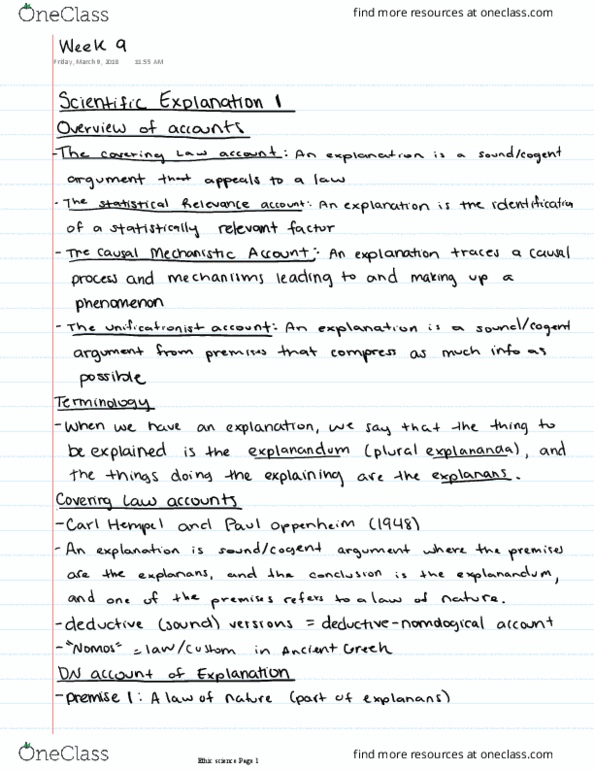 OneClass
find more resources at oneclass.com
Week 9
Friday, March 9, 2018 11:55 AM
Scientific Explanation 1
Overview of accounts
- The covering Law account: An explanation is a sound/cogent
argument that appeals to a law
- The statistical Relevance account: An explanation is the identification
of a statistically relevant factor
- The Causal Mechanistic Account: An explanation traces a causal
process and mechanisms leading to and making up a
phenomenon
- The unificationist account: An explanation is a sound/cogent
argument from premises that compress as much info as
possible
Terminology
- When we have an explanation, we say that the thing to
be explained is the explanandum (plural explananda), and
the things doing the explaining are the explanans.
Covering Law accounts
- Carl Hempel and Paul Oppenheim (1948)
- An explanation is sound/cogent argument where the premises
are the explanans, and the conclusion is the explanandum,
and one of the premises refers to a law of nature.
- deductive (sound) versions = deductive-nomological account
- "Nomos" = law/custom in Ancient Greek
DN account of Explanation
- premise 1: A law of nature (part of explanans)
OneClass
science Page 1
find more resources at oneclass.com